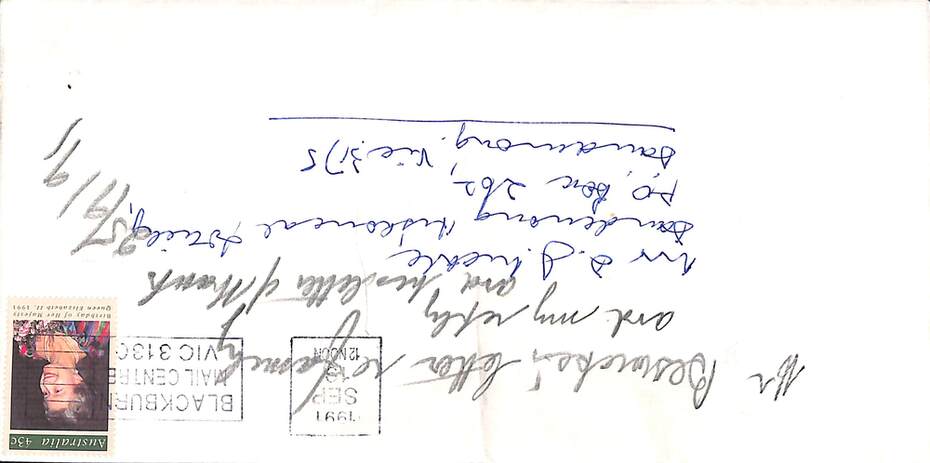 Australia 43c
1991
SEP
12 NOON
BLACKBURN
MAIL CENTRE
VIC 3130
Birthday of Her Majesty
Queen Elizabeth II. 1991
Mr letter re family
and my reply
and his letter of thanks
Mr D. J. Mickle
Dandenong Historical Society,
P.O. Box 262,
Dandenong, Vic. 3175